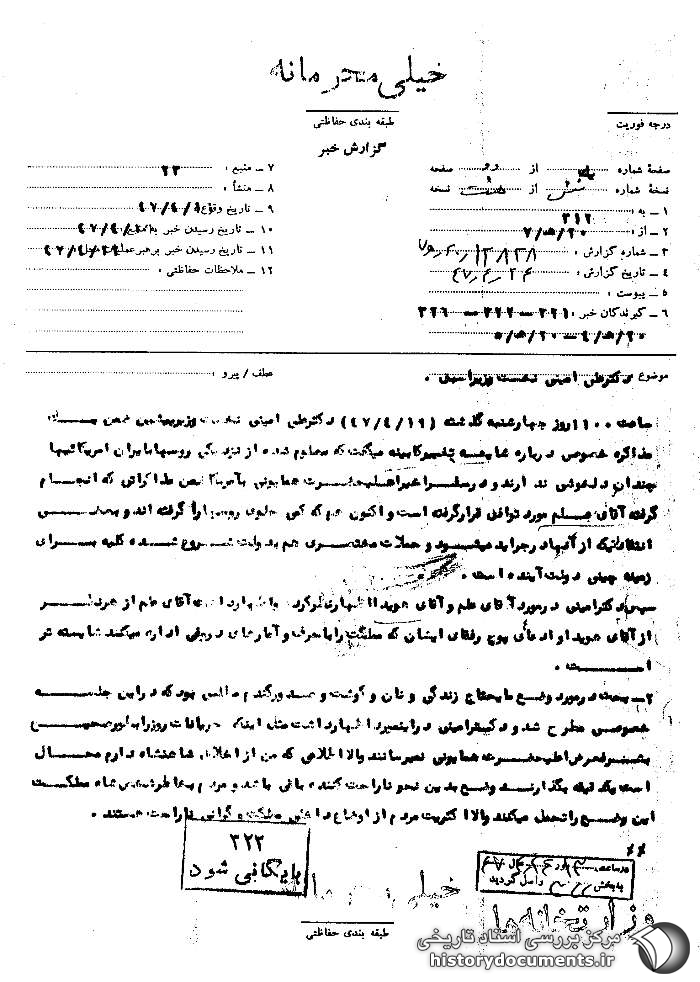 خیلی محرمانه
طبقه بندی حفاظتی
درجه فوریت
گزارش خبر
صفحۀ شماره یک از دو صفحه
نسخۀ شماره شش از هشت نسخه
۱ ــ به : ۳۱۲
۲ ــ از : ۷/ﻫ/۲۰
۳ ــ شماره گزارش :
۴ ــ تاریخ گزارش : ۴۷٫۴٫۲۴
۵ ــ پیوست :
۶ ــ گیرندگان خبر : ۳۲۱ ــ ۳۲۲ ــ ۳۲۶
۲۰/ﻫ/۴ ــ ۲۰/ﻫ/
۷ ــ منبع : ۲۳
۸ ــ منشأ :
۹ ــ تاریخ وقوع
۱۰ ــ تاریخ رسیدن خبر به منبع
۱۱ ــ تاریخ رسیدن خبر برهبر عملیات
۱۲ ــ ملاحظات حفاظتی :
موضوع : دکترعلی امینی نخست وزیر اسبق .
عطف / پیرو :
ساعت ۱۱۰۰ روز چهارشنبه گذشته (۴۷/۴/۱۹) دکترعلی امینی نخست وزیر پیشین ضمن یک
مذاکره خصوصی درباره شایعه تغییر کابینه میگفت که معلوم شده از نزدیکی روسها با ایران امریکائیها
چندان دلخوشی ندارند و در سفر اخیر اعلیحضرت همایونی بآمریکا ضمن مذاکراتی که انجام
گرفته آقای علم مورد توافق قرار گرفته است و اکنون هم که کمی جلوی روسها را گرفته اند و بعضی
انتقاداتیکه از آنها در جراید میشود و حملات مختصری هم بدولت شروع شده کلیه برای
زمینه چینی دولت آینده است .
سپس دکتر امینی در مورد آقای علم و آقای هویدا اظهار نظر کرده و اظهار داشت آقای علم از هر نظر
از آقای هویدا و ادعای پوچ رفقای ایشان که مملکت را با حرف و آمارهای دروغی اداره میکنند شایسته تر
است .
۲ــ بحث در مورد وضع مایحتاج زندگی و نان و گوشت و مصدور گندم مطلبی بود که در این جلسه
خصوصی مطرح شد و دکتر امینی در اینمورد اظهار داشت مثل اینکه جریانات روز را بطور صحیح
بشرفعرض اعلیحضرت همایونی نمیرسانند والا اطلاعی که من از اخلاق شاهنشاه دارم محال
است یکدقیقه بگذارند وضع بدین نحو ناراحت کننده باقی باشد و مردم بخاطر شخص شاه مملکت
این وضع را تحمل میکنند والا اکثریت مردم از اوضاع داخلی مملکت و گرانی ناراحت هستند .
۳۲۲
بایگانی شود
واصل گردید
خیلی محرمانه
طبقه بندی حفاظتی
مرکز بررسی اسناد تاریخی
historydocuments.ir